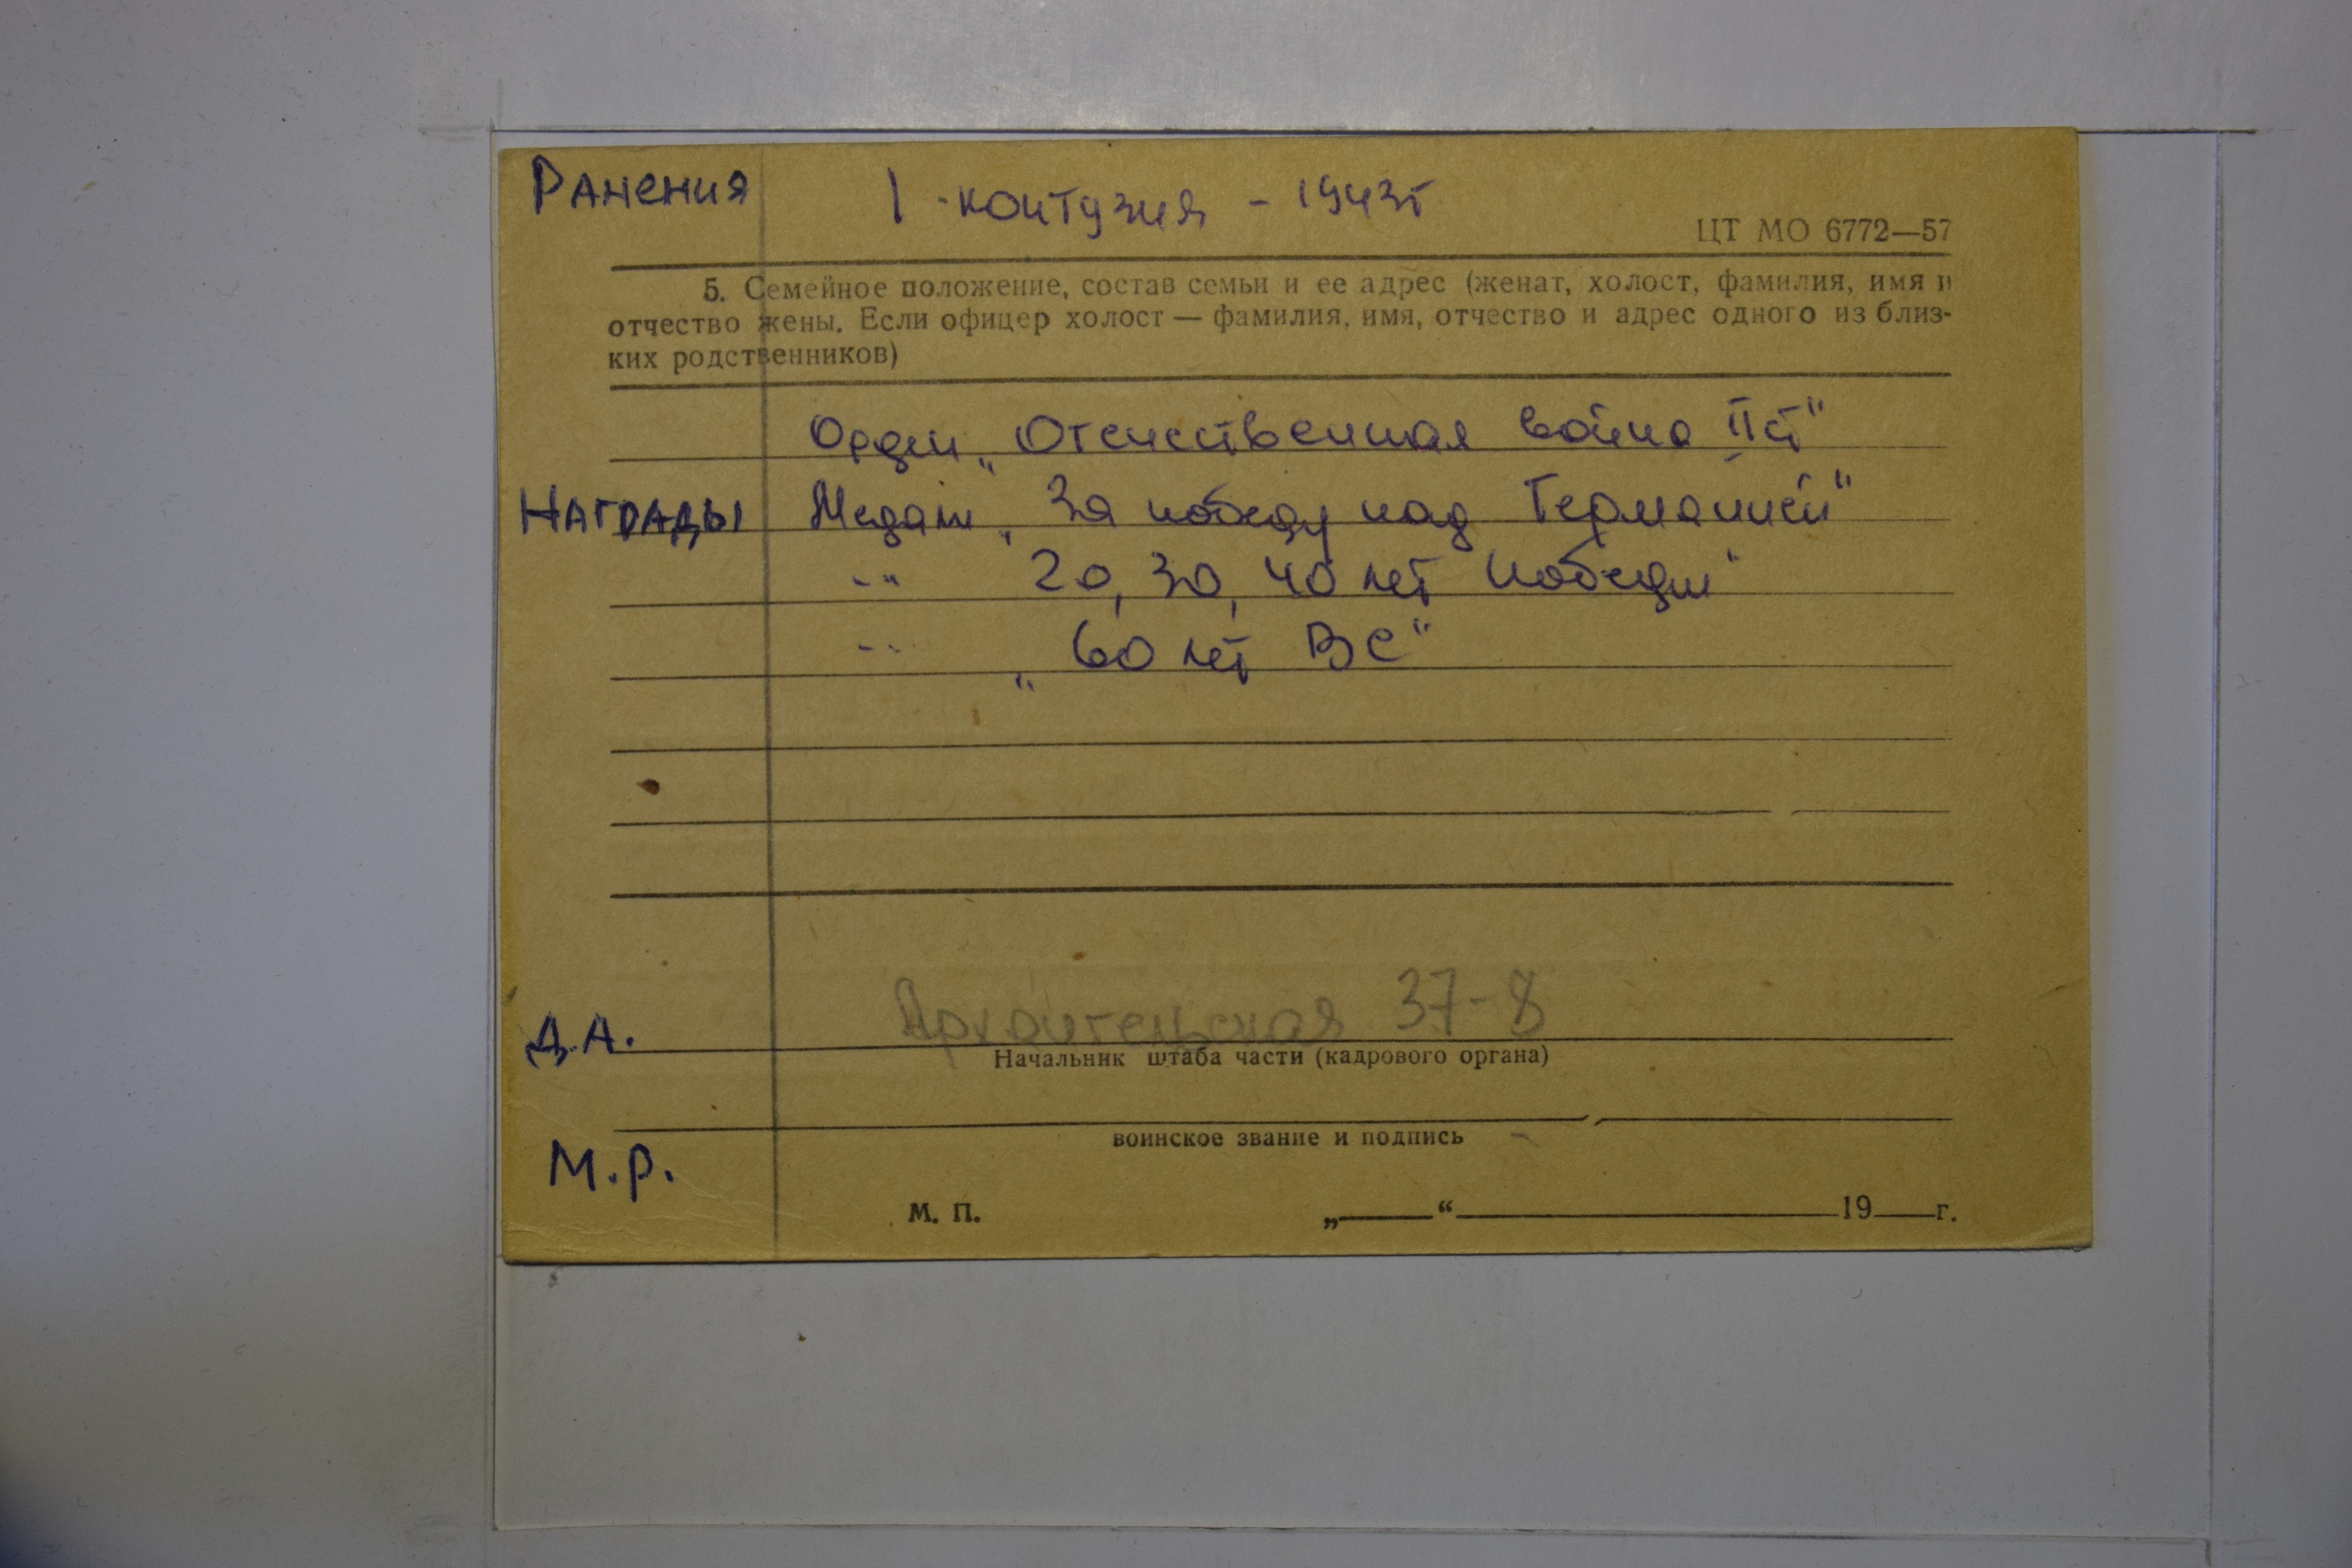 Ранения 1 - контузия - 1943г
ЦТ МО 6772—57
5. Семейное положение, состав семьи и ее адрес (женат, холост, фамилия, имя и
отчество жены. Если офицер холост — фамилия, имя, отчество и адрес одного из близ-
ких родственников)
Орден „Отечественная война II ст"
Награды Медали „За победу над Германией"
-"- 20, 30, 40 лет Победы"
-"- „60 лет ВС"
Д.А. Архангельская 37-8
Начальник штаба части (кадрового органа)
воинское звание и подпись
М.Р.
М. П. „___“ ___ 19__г.